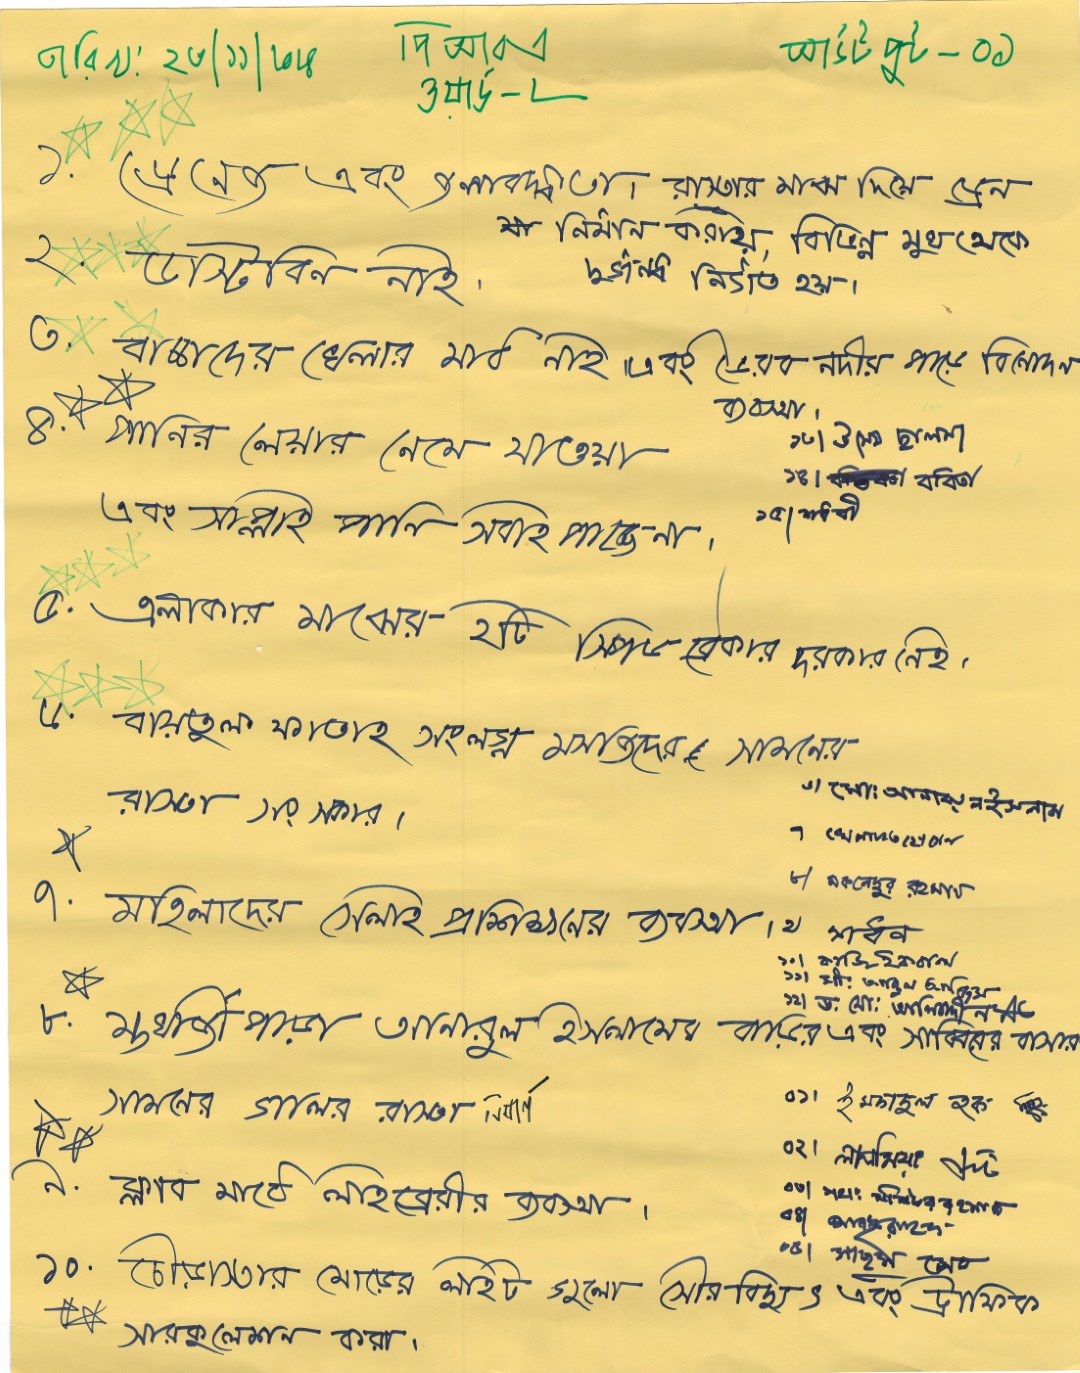 তারিখ: ২৩/১১/
পি আর এ
ওয়ার্ড - ৮
আউট পুট - ০১
১. ড্রেনেজ এবং জলাবদ্ধতা। রাস্তার মাঝ দিয়ে ড্রেন
নির্মান করায়, বিভিন্ন মুখ থেকে
দুর্গন্ধ নির্গত হয়।
২. ডাস্টবিন নাই।
৩. বাচ্চাদের খেলার মাঠ নাই এবং ভৈরব নদীর পাড়ে বিনোদন
ব্যবস্থা।
৪. পানির লেয়ার নেমে যাওয়া
এবং সাপ্লাই পানি সবাই পাচ্ছে না।
১৩।
১৪। ববিতা
১৫।
৫. এলাকার মাঝের ২টি স্পিড ব্রেকার দরকার নেই।
৬. বায়তুল ফাতাহ সংলগ্ন মসজিদের সামনের
রাস্তা সংস্কার।
৬। মো: আনারুল ইসলাম
৭
৮। রহমান
৭. মহিলাদের সেলাই প্রশিক্ষনের ব্যবস্থা।
৯ সাধন
১০। কাজি ইকবাল
১১।
১২। ড: মো:
৮. মুখার্জী পাড়া আনারুল ইসলামের বাড়ির এবং সাব্বিরের বাসার
সামনের গলির রাস্তা নির্মাণ
০১। হক
০২।
০৩।
০৪।
০৫।
৯. ক্লাব মাঠে লাইব্রেরীর ব্যবস্থা।
১০. চৌরাস্তার মোড়ের লাইট গুলো সৌর বিদ্যুৎ এবং ট্রাফিক
সারকুলেশন করা।